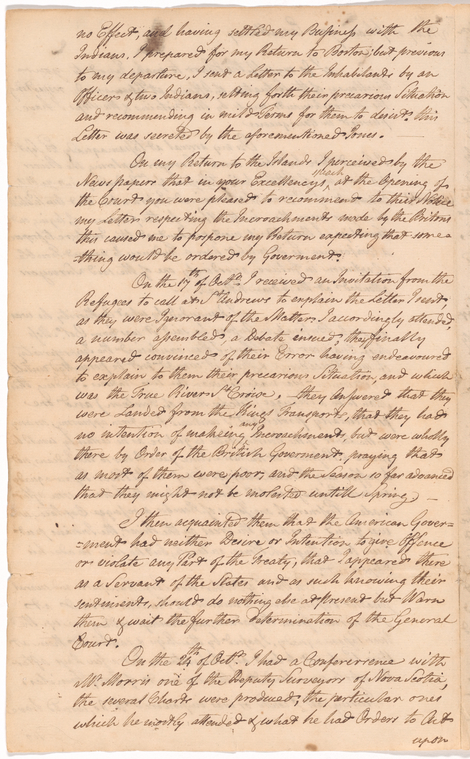 no Effect, and having settled my Business with the
Indians, I prepared for my Return to Boston, but previous
to my departure, I sent a Letter to the Inhabitants by an
Officer & two Indians, setting forth their precarious Situation
and recommending in mild Terms for them to desist. this
Letter was secreted by the aforementioned Jones.
On my Return to the Islands I perceived by the
News papers that in your Excellencys speech, at the Opening of
the Court you were pleased to recommend to their Notice
my Letter respecting the Incroachments made by the Britons
this caused me to postpone my Return expecting that some=
thing would be ordered by Goverment.
On the 17th of Octr. I received an Invitation from the
Refugees to call at St. Andrews to explain the Letter I sent,
as they were Ignorant of the Matter, I accordingly attended,
a number assembled, a Debate insued, they finally
appeared convinced of their Error having endeavoured
to explain to them their precarious Situation, and which
was the True River St. Croix, - they Answered that they
were Landed from the Kings Transports, that they had
no intention of makeing any Incroachments, but were wholly
there by Order of the British Goverment, praying that
as most of them were poor, and the Season so far advanced
that they might not be molested untill Spring —
I then acquainted them that the American Gover-
-ment had neither Desire or Intention to give Offence
or violate any Part of the Treaty, that I appeared there
as a Servant of the States and as such knowing their
sentiments, should do nothing else at present but Warn
them & wait the further Determination of the General
Court.
On the 24th of Octr. I had a Conferrence with
Mr. Morris one of the Deputy Surveyors of Nova Scotia,
the several Charts were produced, the particular ones
which he mostly attended & what he had Orders to Act
upon